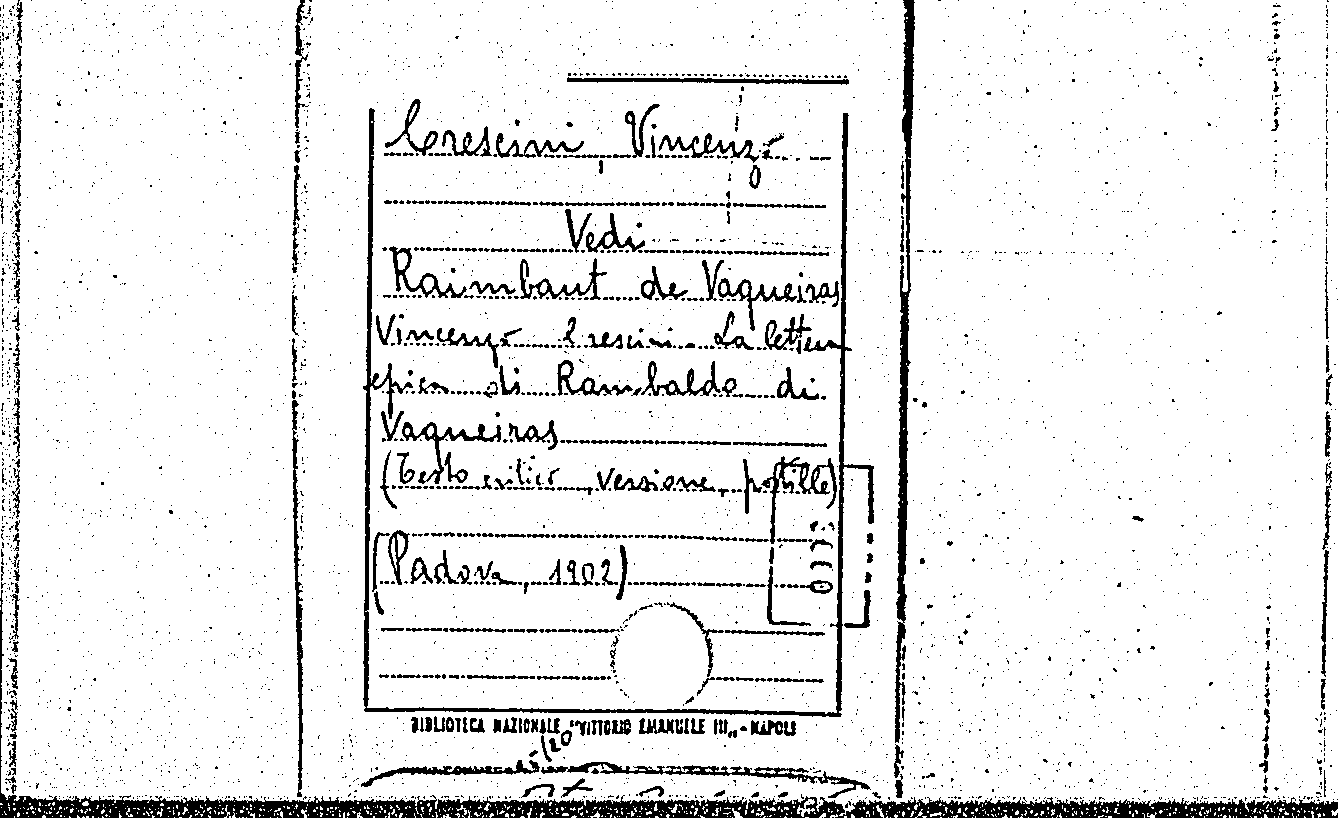 Crescini, Vincenzo
Vedi
Raimbaut de Vaqueiras
Vincenzo Crescini. La lettera
epica di Rambaldo di
Vaqueiras
(Testo critico, versione, postille)
(Padova, 1902)
BIBLIOTECA NAZIONALE "VITTORIO EMANUELE III" - NAPOLI